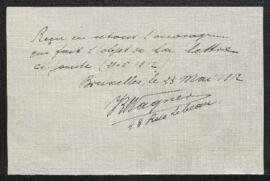 Reçu en retour l'ouvrage
qui fait l'objet de la lettre
ci jointe (21-5-1912)
Bruxelles, le 23 Mai 1912
Wagner
48 Rue